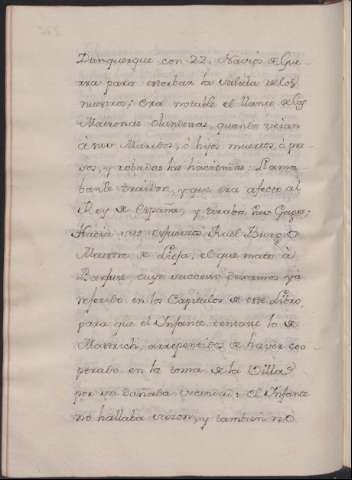 Dunquerque con 22. Navios de Gue-
rra para estorbar la salida de los
nuestros; Era notable el llanto de las
Matronas Olandesas, quando veían
á sus Maridos, ó hijos muertos, ó pre-
sos, y robadas las haciendas: Llama
banle traidor, y que era afecto al
Rey de España, y tiraba sus Gages;
Hacia sus esfuerzos Ruel Burg
Maestre de Lieja, el que mató á
Barfusé cuyo succeso dexamos yá
referido en los Capitulos de este Libro,
para que el Infante tentase lo de
Mastrich, arrepentidos de haver coo
perado en la toma de la Villa
por su dañada vecindad: el Infante
no hallaba sazon, y tambien no